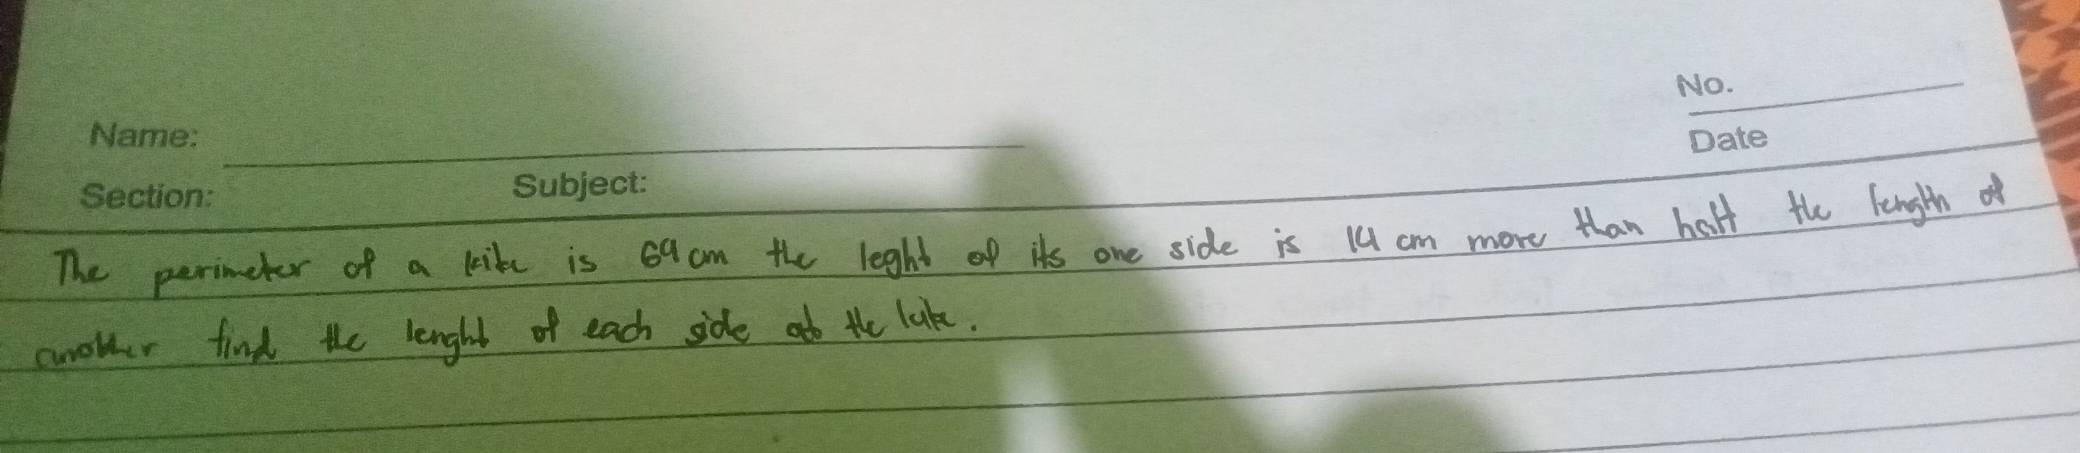 No.
Date
Name:
Section: Subject:
The perimeter of a kite is 69 cm the leght of its one side is 14 cm more than half the length of
another find the lenght of each side of the kite.